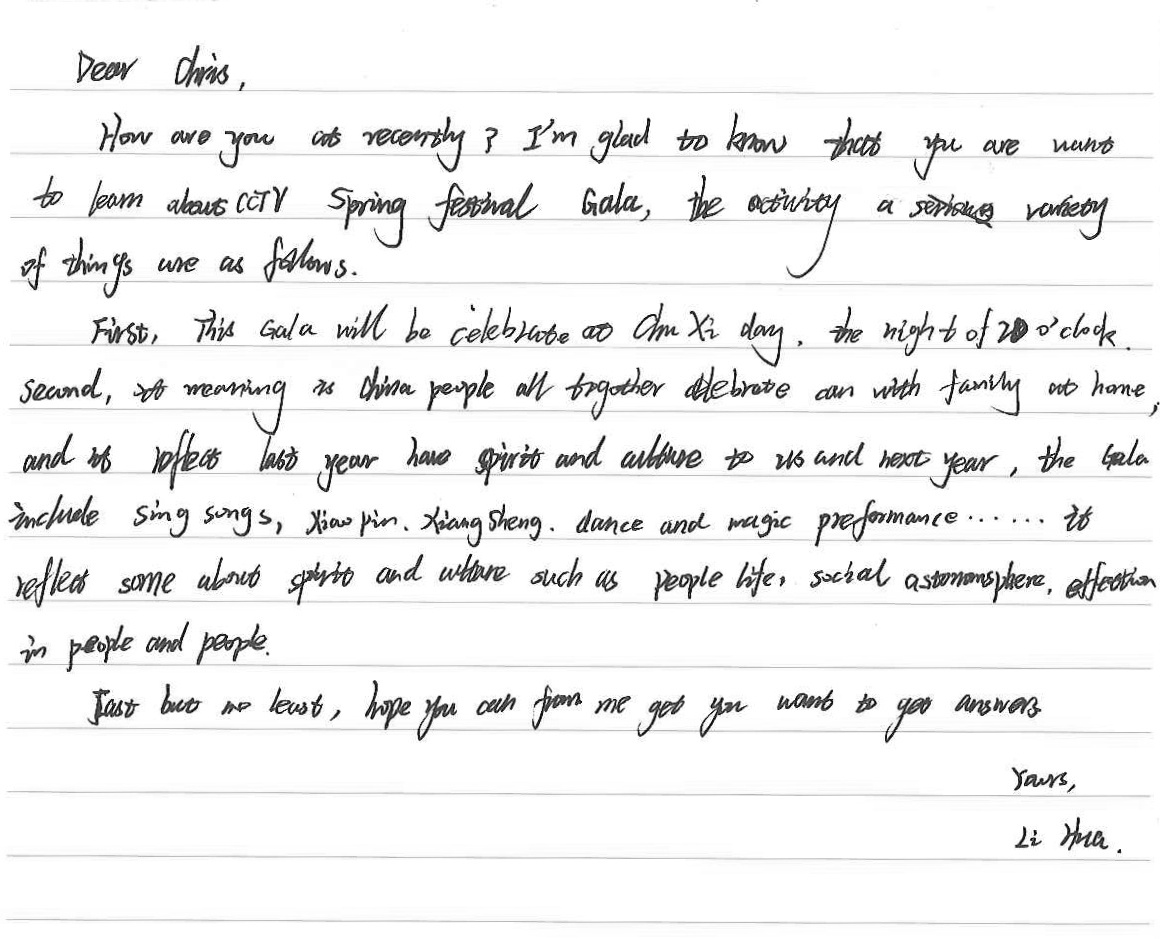 Dear Chris,
How are you at recently? I'm glad to know that you are want
to learn about CCTV Spring festival Gala, the activity a serious variety
of things are as follows.
First, This Gala will be celebrate at Chu Xi day, the night of 20 o'clock.
second, it meaning is China people all together celebrate can with family at home,
and it reflect last year have spirit and culture to us and next year, the Gala
include sing songs, Xiao pin. Xiang Sheng. dance and magic preformance...... it
reflect some about spirit and culture such as people life, social astomonsphere, effection
in people and people.
Last but no least, hope you can from me get you want to get answers
Yours,
Li Hua.